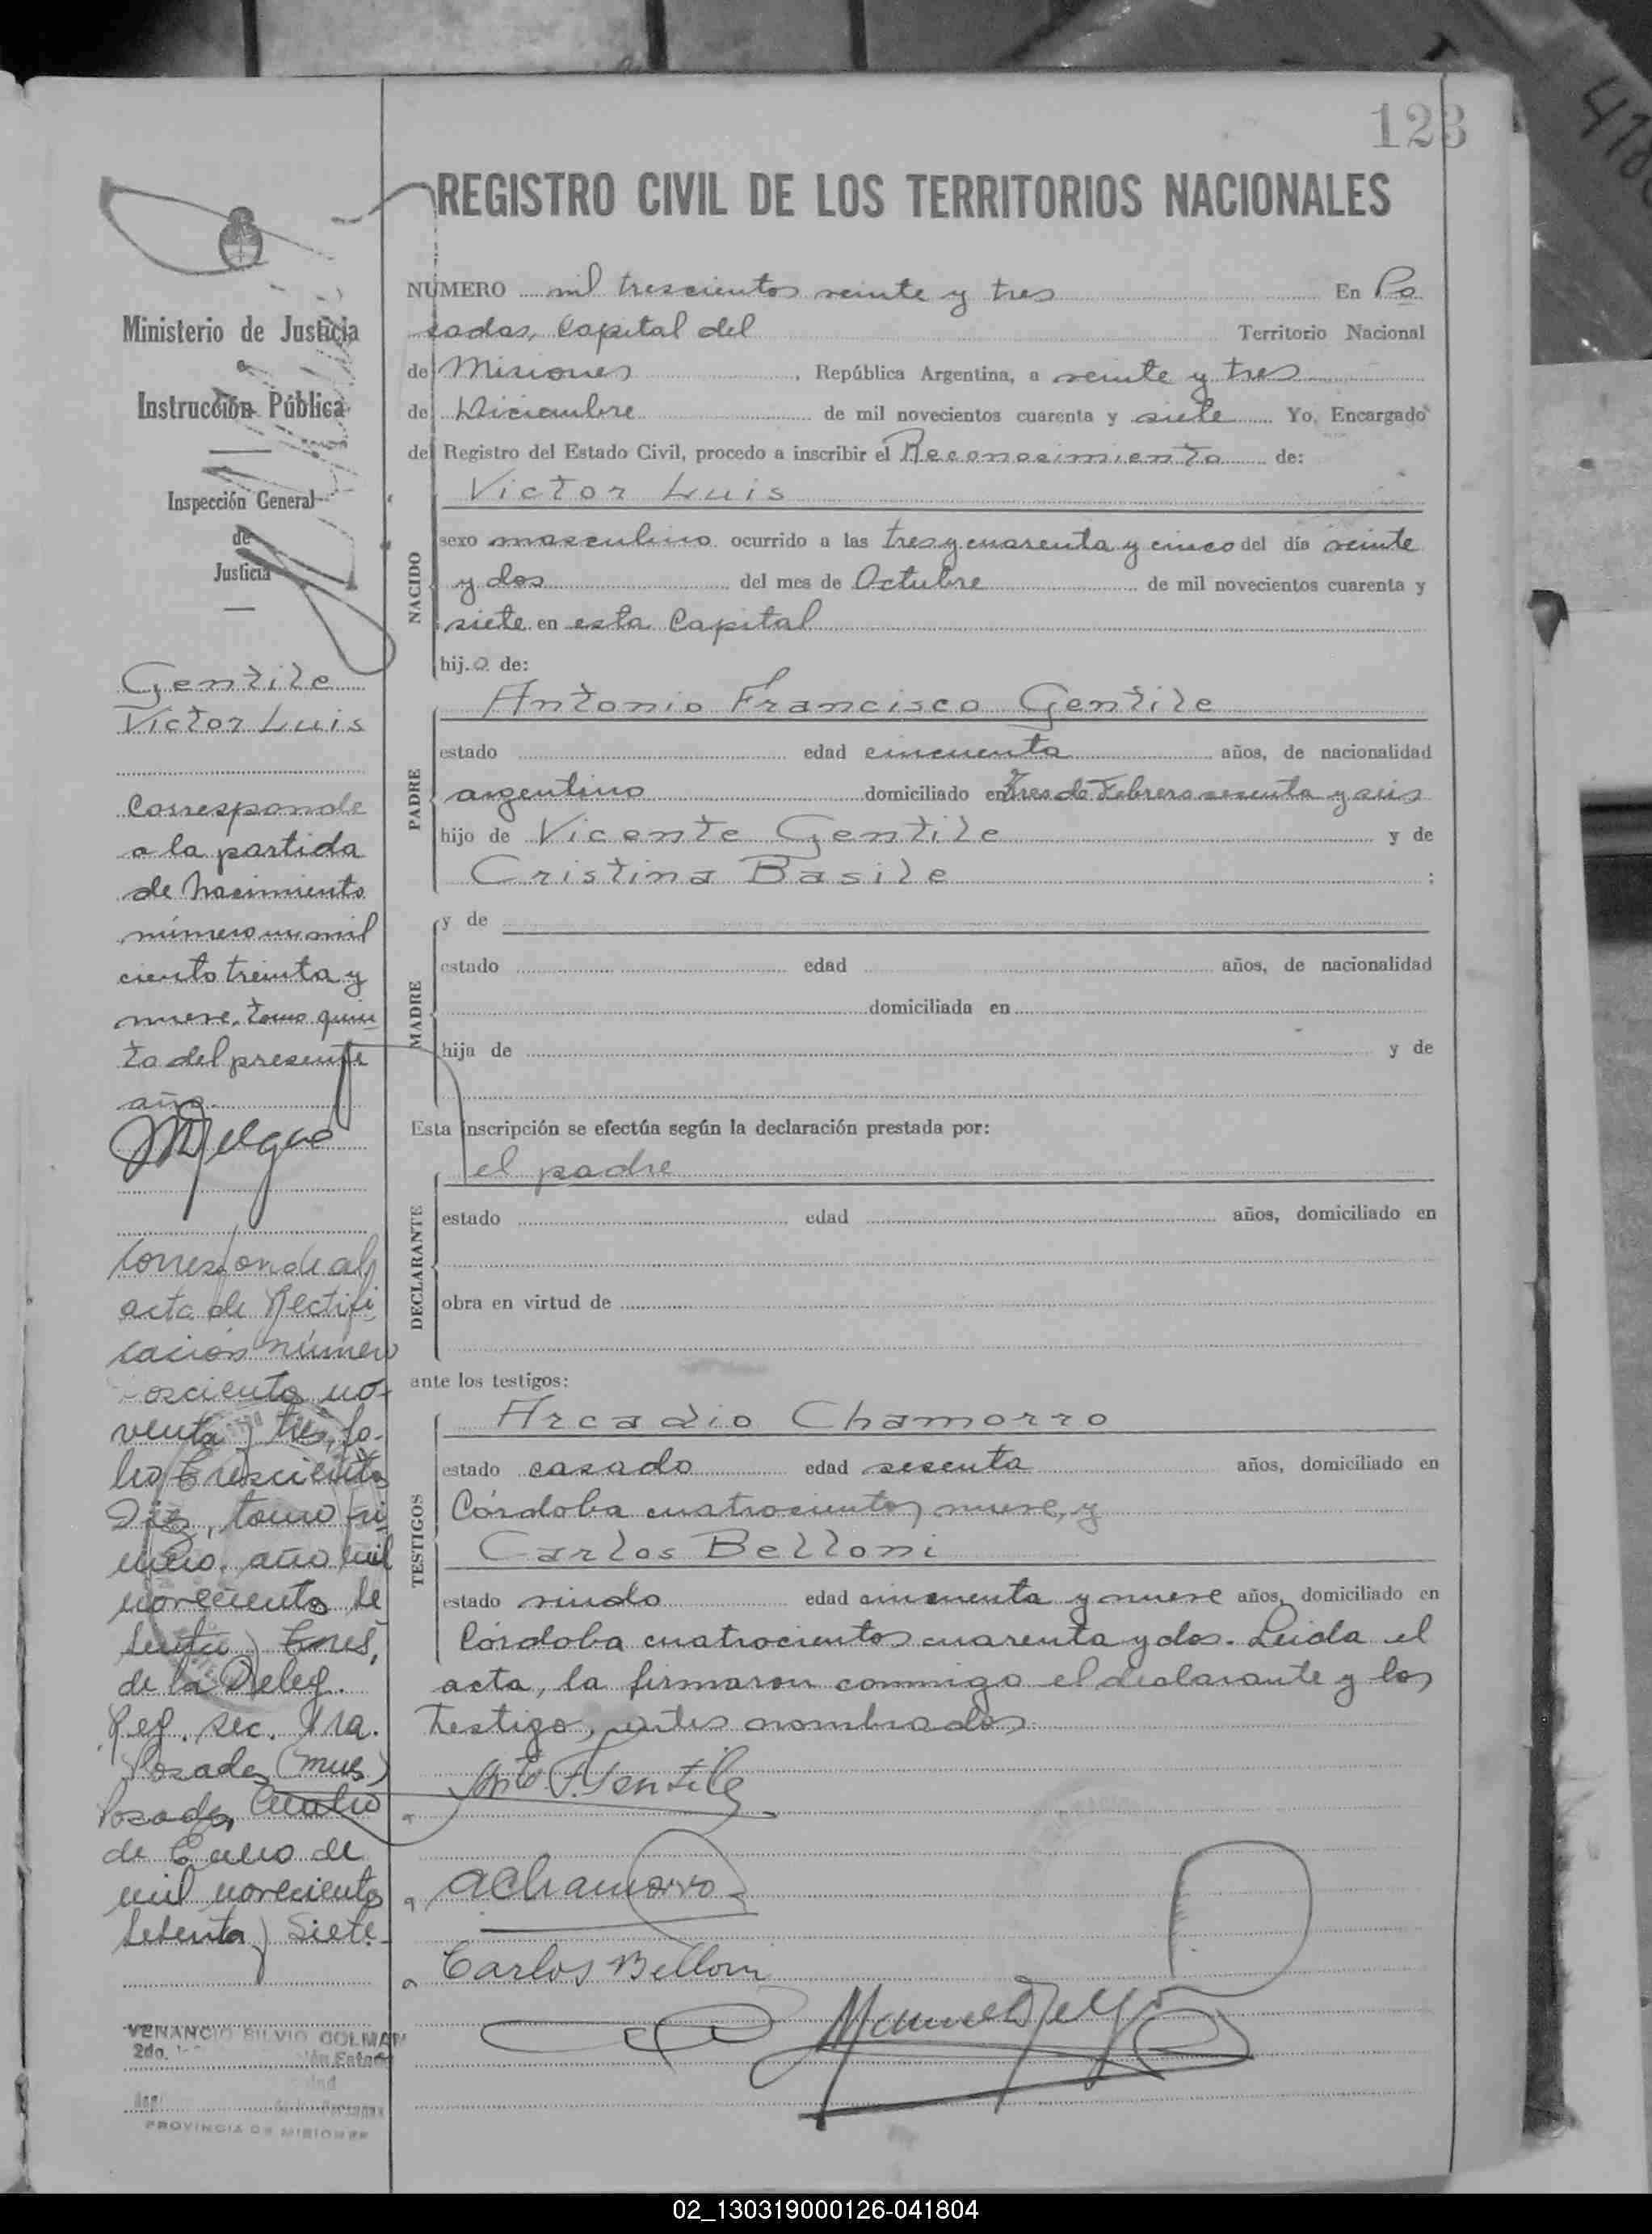 123
REGISTRO CIVIL DE LOS TERRITORIOS NACIONALES
NUMERO mil trescientos veinte y tres En Po
sadas, Capital del Territorio Nacional
de Misiones, República Argentina, a veinte y tres
de Diciembre de mil novecientos cuarenta y siete Yo, Encargado
del Registro del Estado Civil, procedo a inscribir el Reconocimiento de:
Victor Luis
NACIDO
sexo masculino ocurrido a las tres y cuarenta y cinco del día veinte
y dos del mes de Octubre de mil novecientos cuarenta y
siete en esta Capital
hijo de:
Antonio Francisco Gentile
PADRE
estado edad cincuenta años, de nacionalidad
argentino domiciliado en Tres de Febrero sesenta y seis
hijo de Vicente Gentile y de
Cristina Basile :
MADRE
y de
estado edad años, de nacionalidad
domiciliada en
hija de y de
Esta inscripción se efectúa según la declaración prestada por:
el padre
DECLARANTE
estado edad años, domiciliado en
obra en virtud de
ante los testigos:
Arcadio Chamorro
TESTIGOS
estado casado edad sesenta años, domiciliado en
Córdoba cuatrocientos nueve, y
Carlos Belloni
estado viudo edad cincuenta y nueve años, domiciliado en
Córdoba cuatrocientos cuarenta y dos. Leida el
acta, la firmaron conmigo el declarante y los
testigos, antes nombrados
Anto F. Gentile
AChamorro
Carlos Belloni
Ministerio de Justicia
e
Instrucción Pública
Inspección General
de
Justicia
Gentile
Victor Luis
Corresponde
a la partida
de Nacimiento
número un mil
ciento treinta y
nueve, tomo quin
to del presente
año.
Corresponde al
acta de Rectifi
cación número
oscientos no-
venta y tres, fo-
lio trescientos
Diez, tomo pri
mero, año mil
novecientos se
tenta y tres,
de la Deleg.
Reg. sec. 1ra.
Posadas (mns)
Posadas,
de Enero de
mil novecientos
setenta y siete.
VENANCIO SILVIO COLMAN
2do.
PROVINCIA DE MISIONES
02_130319000126-041804